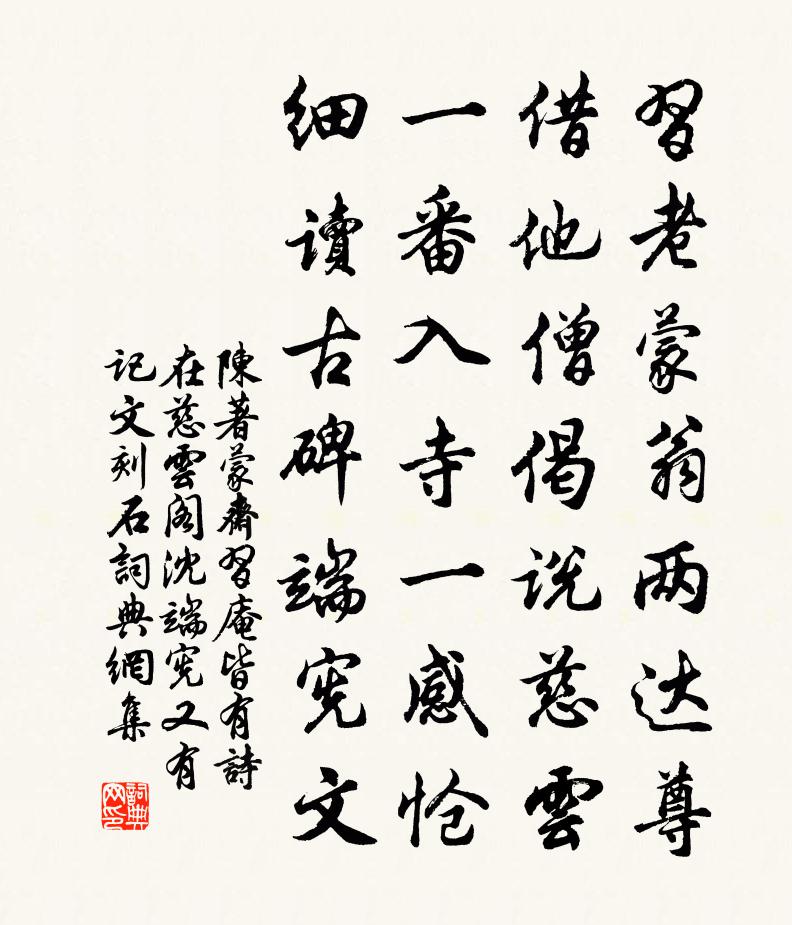 習老蒙翁两达尊
借他僧偈说慈雲
一番入寺一感怆
细讀古碑端宪文
陳著蒙齋習庵皆有詩
在慈雲阁沈端宪又有
记文刻石詞典網集
詞典网印